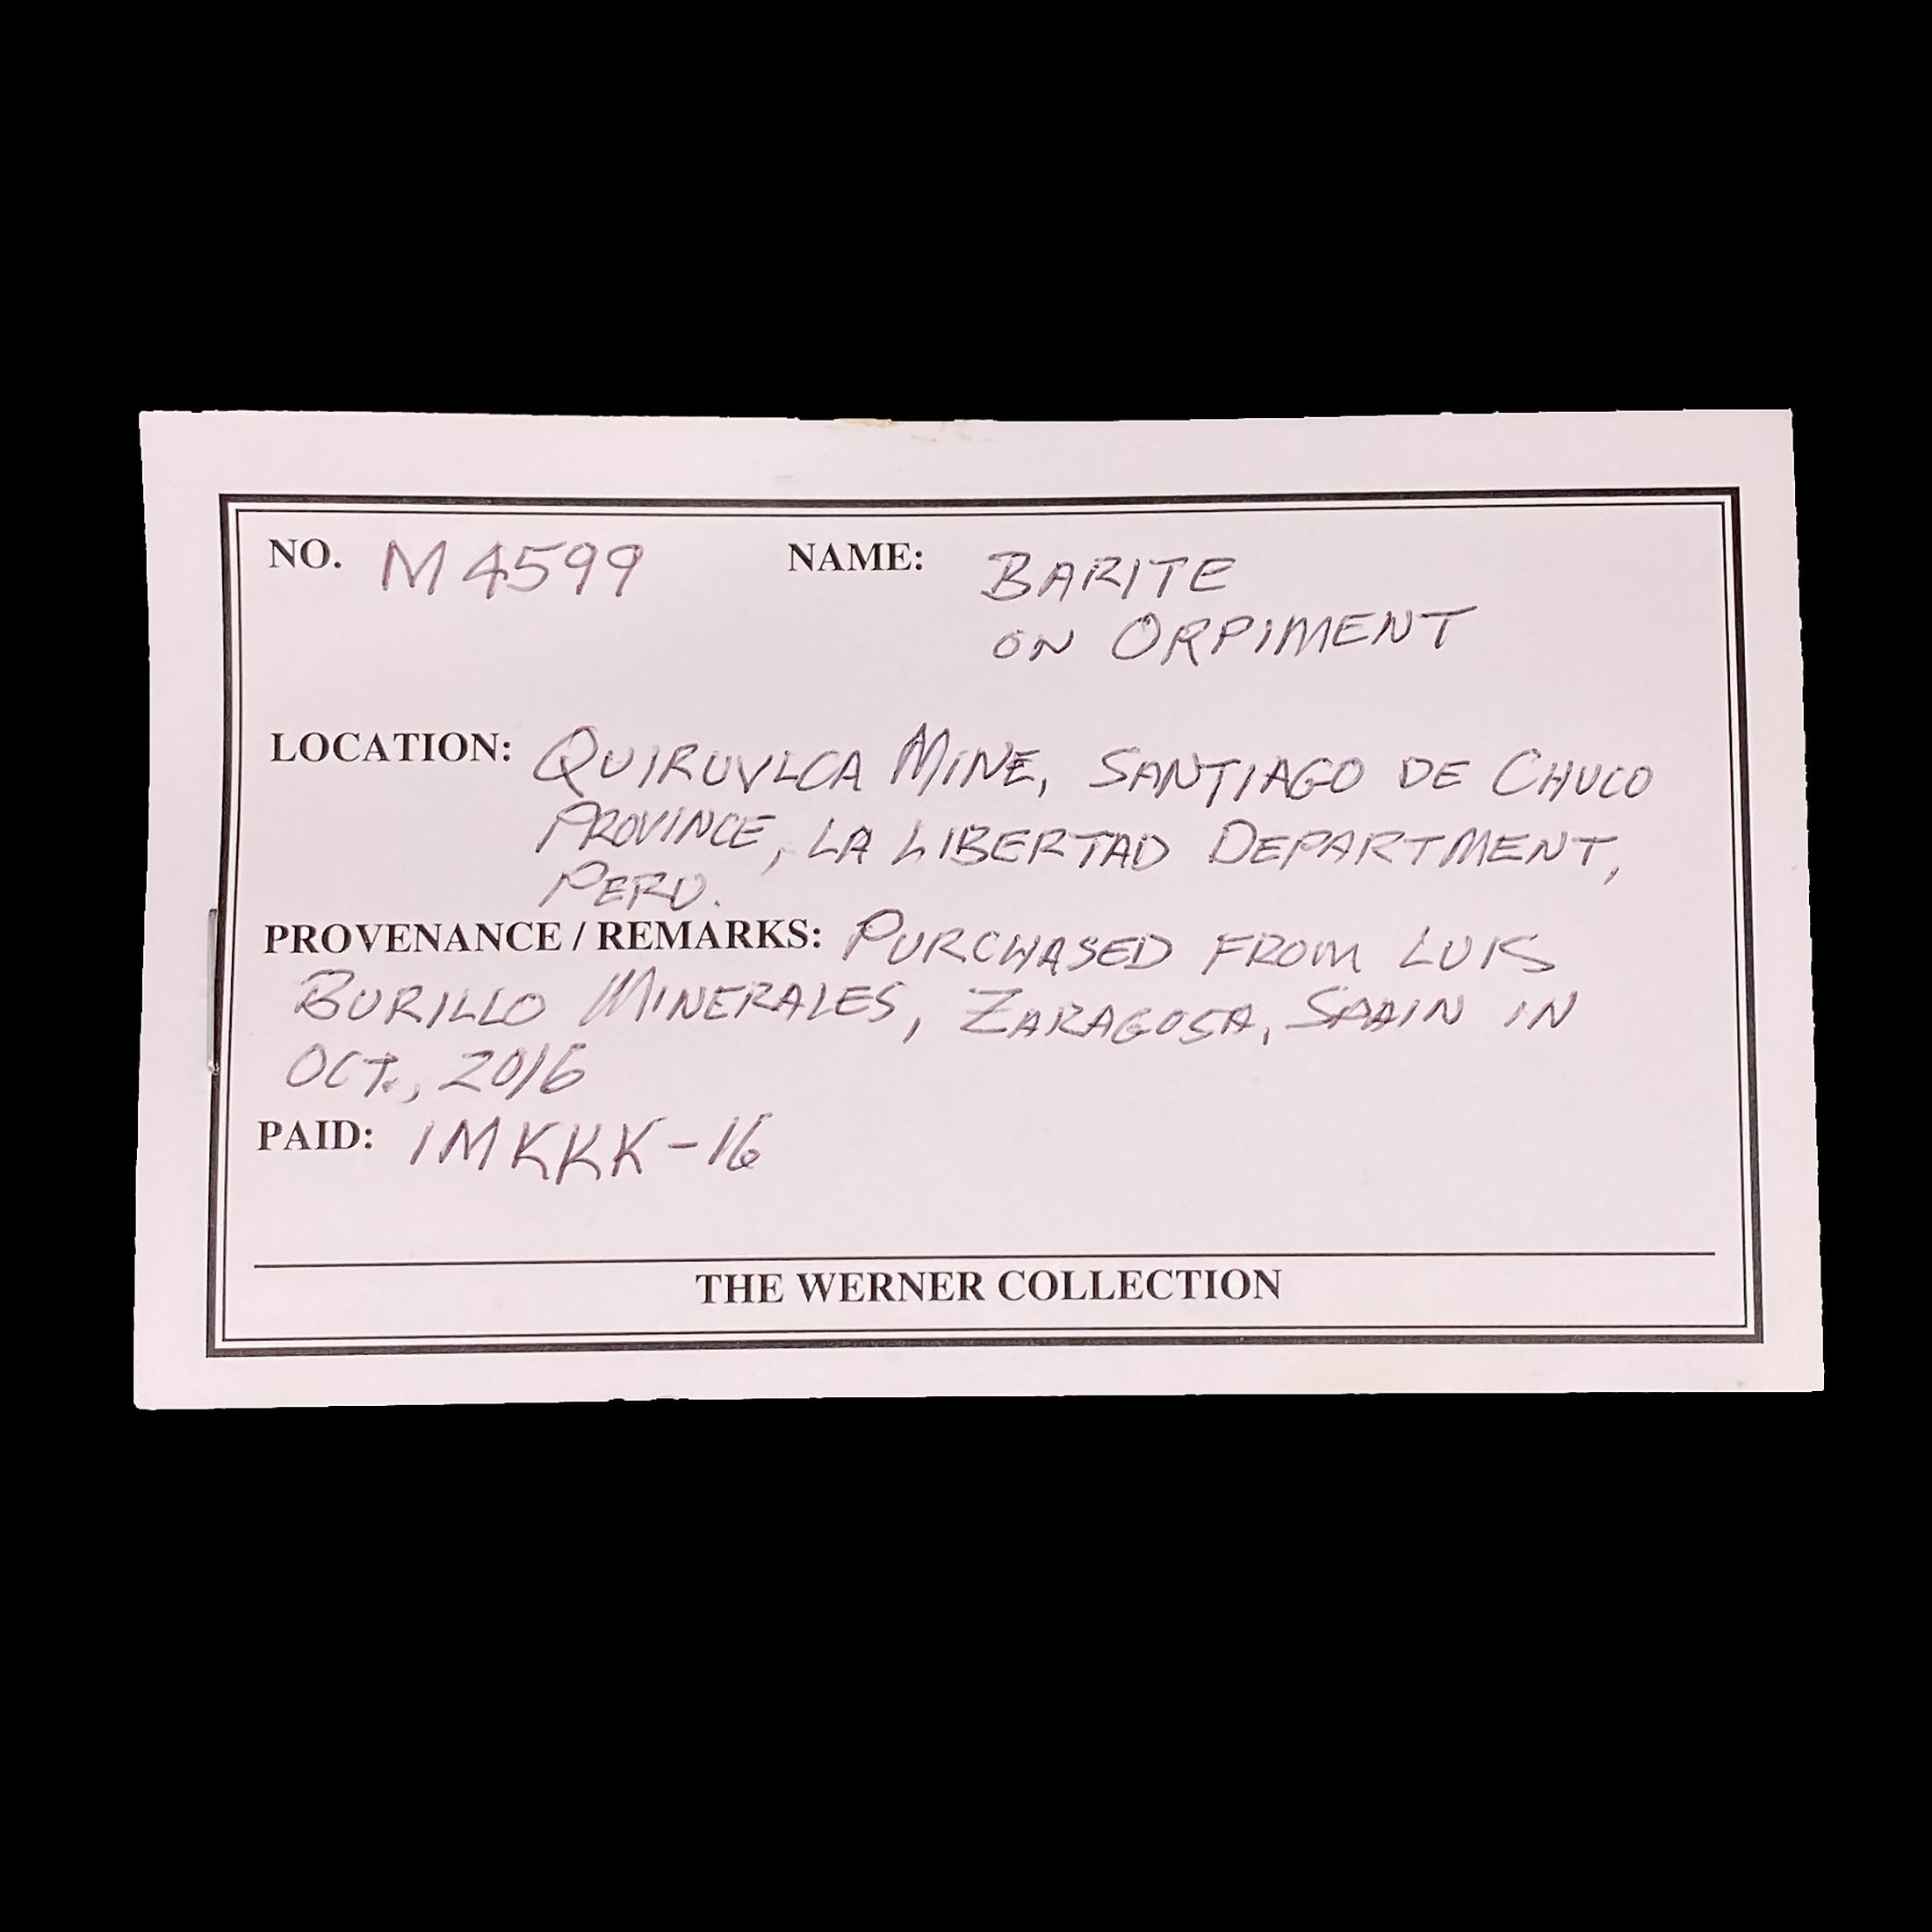 NO. M4599 NAME: BARITE
ON ORPIMENT
LOCATION: QUIRUVLCA MINE, SANTIAGO DE CHUCO
PROVINCE, LA LIBERTAD DEPARTMENT,
PERU.
PROVENANCE / REMARKS: PURCHASED FROM LUIS
BURILLO MINERALES, ZARAGOSA, SPAIN IN
OCT., 2016
PAID: 1MKKK-16
THE WERNER COLLECTION